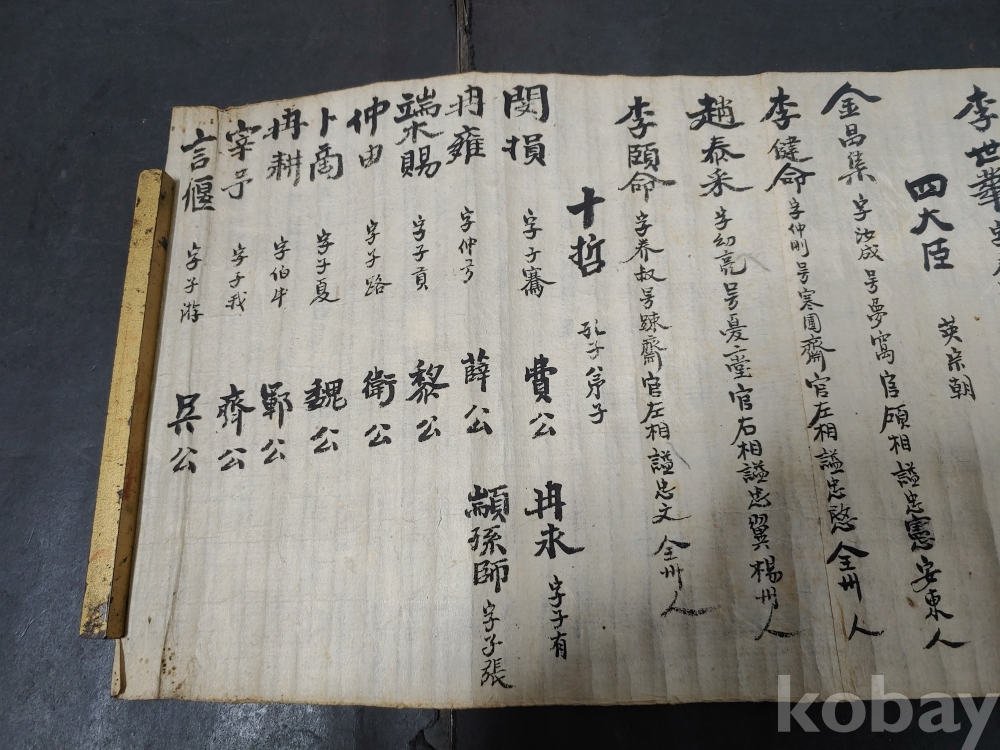 李世華字
四大臣 英宗朝
金昌集 字汝成号夢窩官領相謚忠憲安東人
李健命 字仲剛号寒圃齋官左相謚忠愍全州人
趙泰采 字幼亮号憂堂官右相謚忠翼楊州人
李頤命 字養叔号踈齋官左相謚忠文全州人
十哲 孔子弟子
閔損 字子騫 費公 冉求 字子有
冉雍 字仲弓 薛公 顓孫師 字子張
端木賜 字子貢 黎公
仲由 字子路 衛公
卜商 字子夏 魏公
冉耕 字伯牛 鄆公
宰予 字子我 齊公
言偃 字子游 吳公
kobay